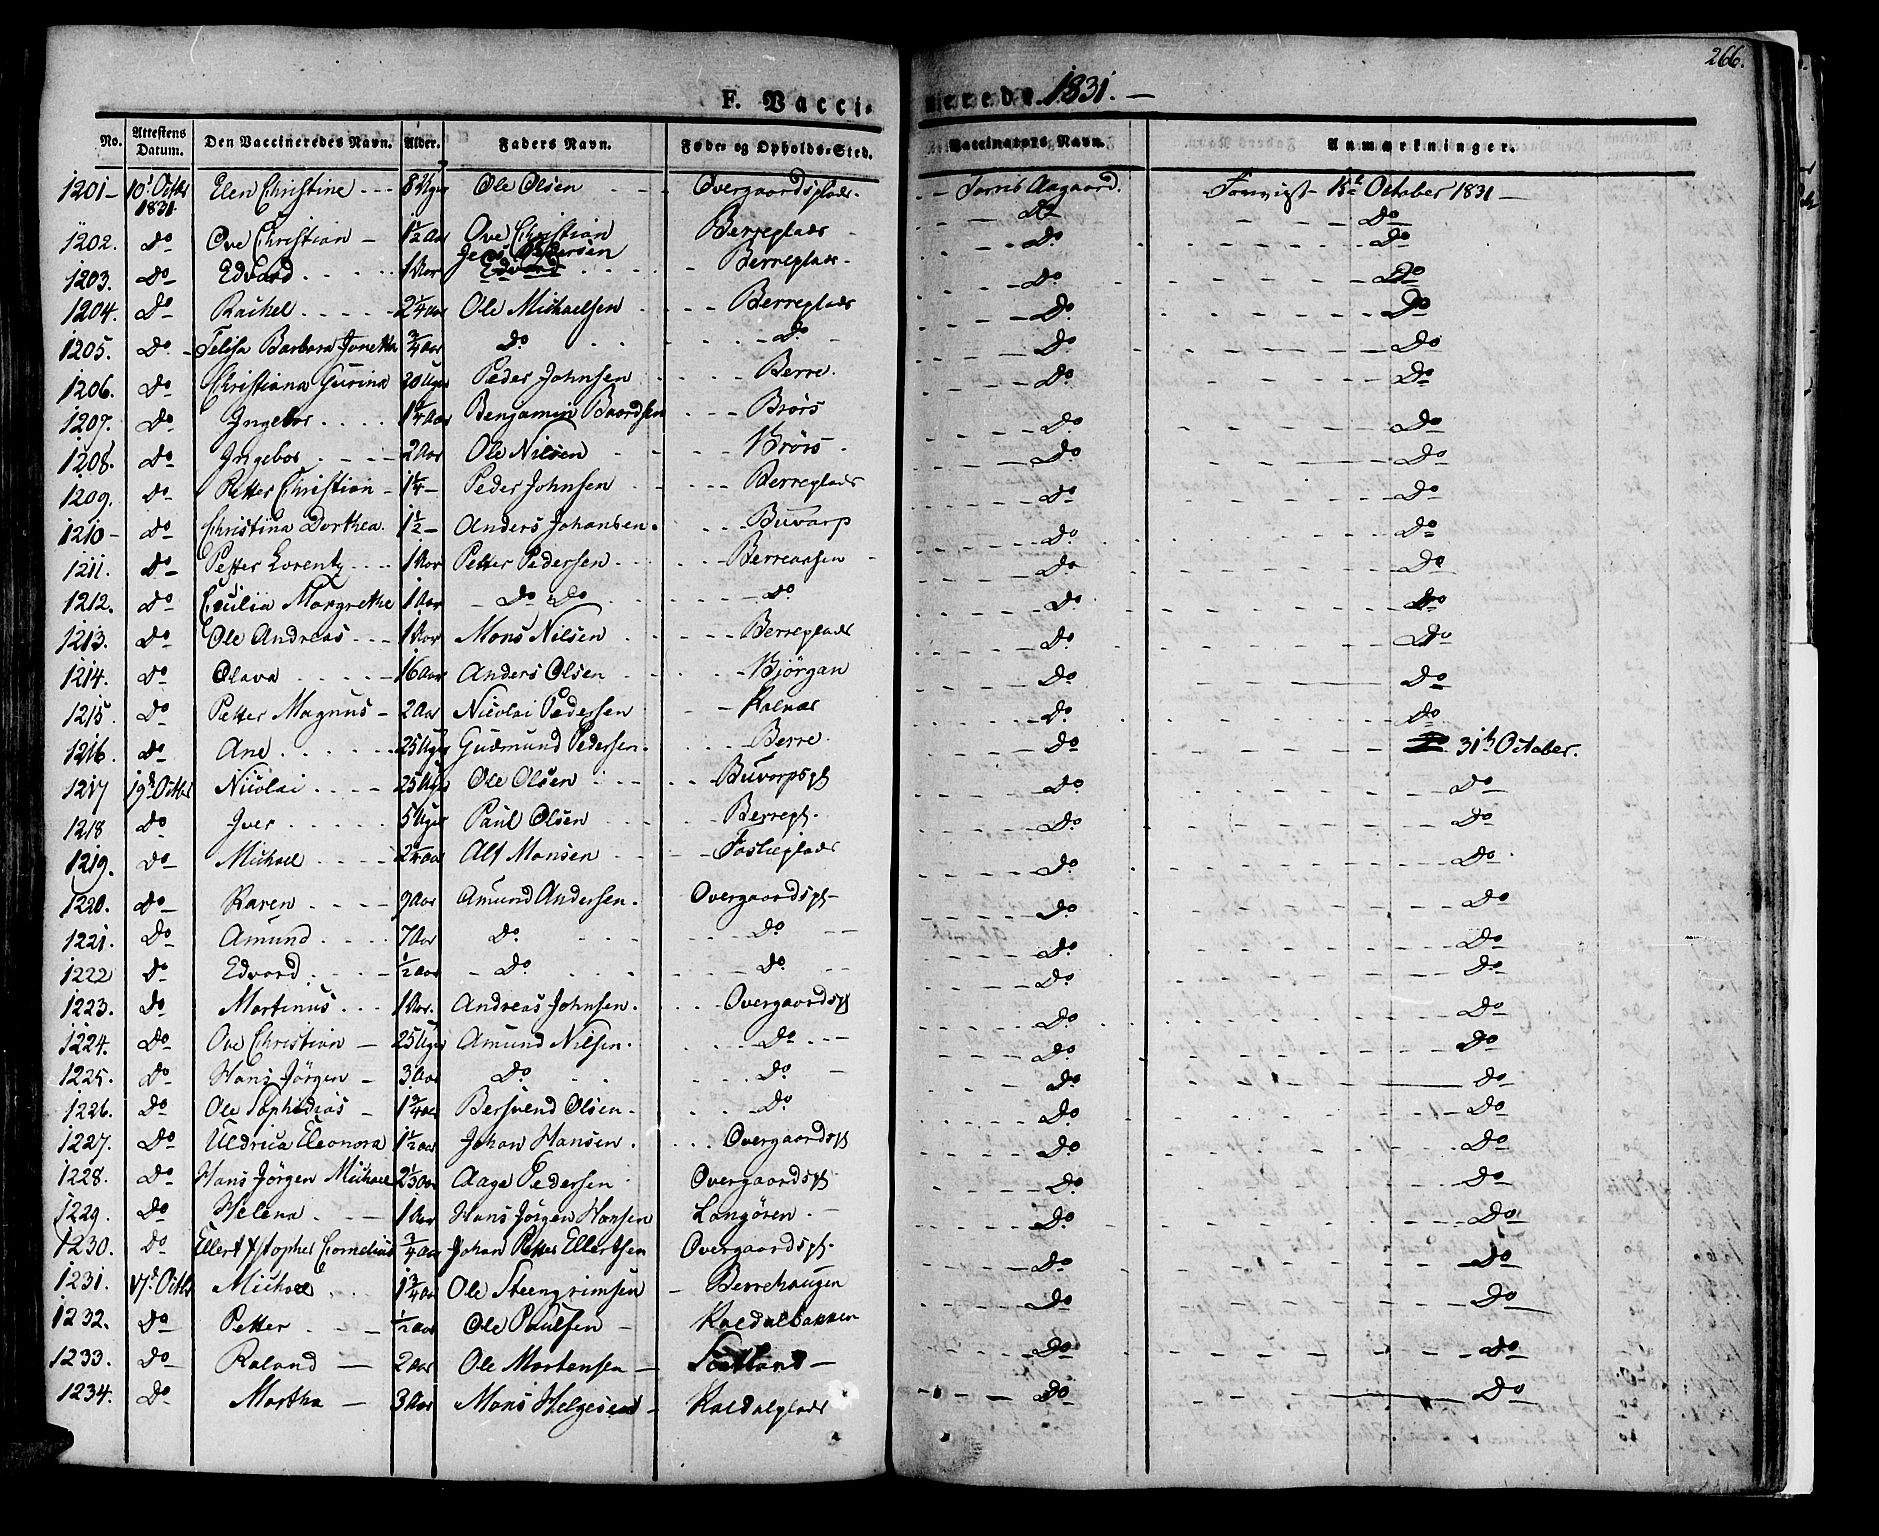 266.
F. Vaccinerede. 1831. —
No. | Attestens Datum. | Den Vaccineredes Navn. | Alder. | Faders Navn. | Føde- og Opholds-Sted. | Vaccinators Navn. | Anmærkninger.
1201 — | 10d Octbr 1831 | Elen Christine | 8 Uger | Ole Olsen | Overgaardsplads. | Torris Aagaard. | October 1831 —
1202. | Do | Ove Christian — | 1½ Aar | Ove Christian | Berreplads | Do | Do
1203. | Do | Edvard | 1 Aar | Jens Pedersen | Berreplads | Do | Do
1204. | Do | Rachel | 2¼ Aar | Ole Michaelsen | Berreplads | Do | Do
1205. | Do | Barbara Jonetta | ¾ Aar | Do | Do | Do | Do
1206. | Do | Christiana Gurina | 20 Uger | Peder Johnsen | Berre. | Do | Do
1207. | Do | Ingebor | 1¼ Aar | Benjamin Baardsen | Brørs | Do | Do
1208. | Do | Ingebor | 2 Aar | Ole Nilsen | Brørs | Do | Do
1209. | Do | Petter Christian — | 1¼ — | Peder Johnsen | Berreplads | Do | Do
1210 — | Do | Christina Dorthea. | 1½ — | Anders Johansen. | Buvarp | Do | Do
1211. | Do | Petter Lorentz | 1 Aar | Petter Pedersen | Berreaasen | Do | Do
1212. | Do | Margrethe | 1 Aar | Do Do | Do | Do | Do
1213. | Do | Ole Andreas | 1 Aar | Mons Nilsen | Berreplads | Do | Do
1214. | Do | Olava | 16 Aar | Anders Olsen | Bjørgan | Do | Do
1215. | Do | Petter Magnus — | 2 Aar | Nicolai Pedersen | | Do | Do
1216. | Do | Ane | 25 Uger | Gudmund Pedersen. | Berre. | Do | 31th October.
1217 | 19d Octbr | Nicolai | 25 Uger | Ole Olsen | Buvarpspl | Do | Do
1218 | Do | Iver | 5 Uger | Paul Olsen | Berrepl. | Do | Do
1219. | Do | Michael | 2¼ Aar | Alf Monsen | Foslieplads | Do | Do
1220. | Do | Karen | 9 Aar | Amund Andersen. | Overgaardspl — | Do | Do
1221. | Do | Amund | 7 Aar | Do. | Do. | Do. | Do
1222 | Do | Edvard | ½ Aar | Do. | Do. | Do. | Do
1223. | Do | Martinus | 1 Aar. | Andreas Johnsen. | Overgaardspl | Do. | Do
1224. | Do | Ove Christian — | 25 Uger | Amund Nilsen. | Do | Do. | Do
1225. | Do | Hans Jørgen — | 3 Aar | Do. | Do. | Do | Do
1226. | Do | Ole Sophidias — | 1¾ Aar | Bersvend Olsen. | Do. | Do. | Do
1227. | Do | Uldrica Eleonora | 1½ Aar | Johan Hansen. | Overgaardspl | Do | Do
1228. | Do | Hans Jørgen Michael | 2⅓ Aar | Aage Pedersen | Overgaardspl | Do. | Do
1229. | Do | Helena | 1 Aar | Hans Jørgen Hansen | Langøren. | Do. | Do
1230. | Do | Ellert Cornelius | ¾ Aar | Johan Petter Ellertsen | Overgaardspl. | Do | Do
1231. | 17d Octbr | Michael | 1¾ Aar | Ole Steengrimsen | Berrehaugen | Do | Do
1232. | Do | Petter | ½ Aar | Ole Paulsen — | Kaldalbakken | Do | Do
1233. | Do | Roland — | 2 Aar | Ole Mortensen — | | Do | Do
1234. | Do | Martha — | 3 Aar | Mons Helgesen — | Kaldalplads | Do | Do